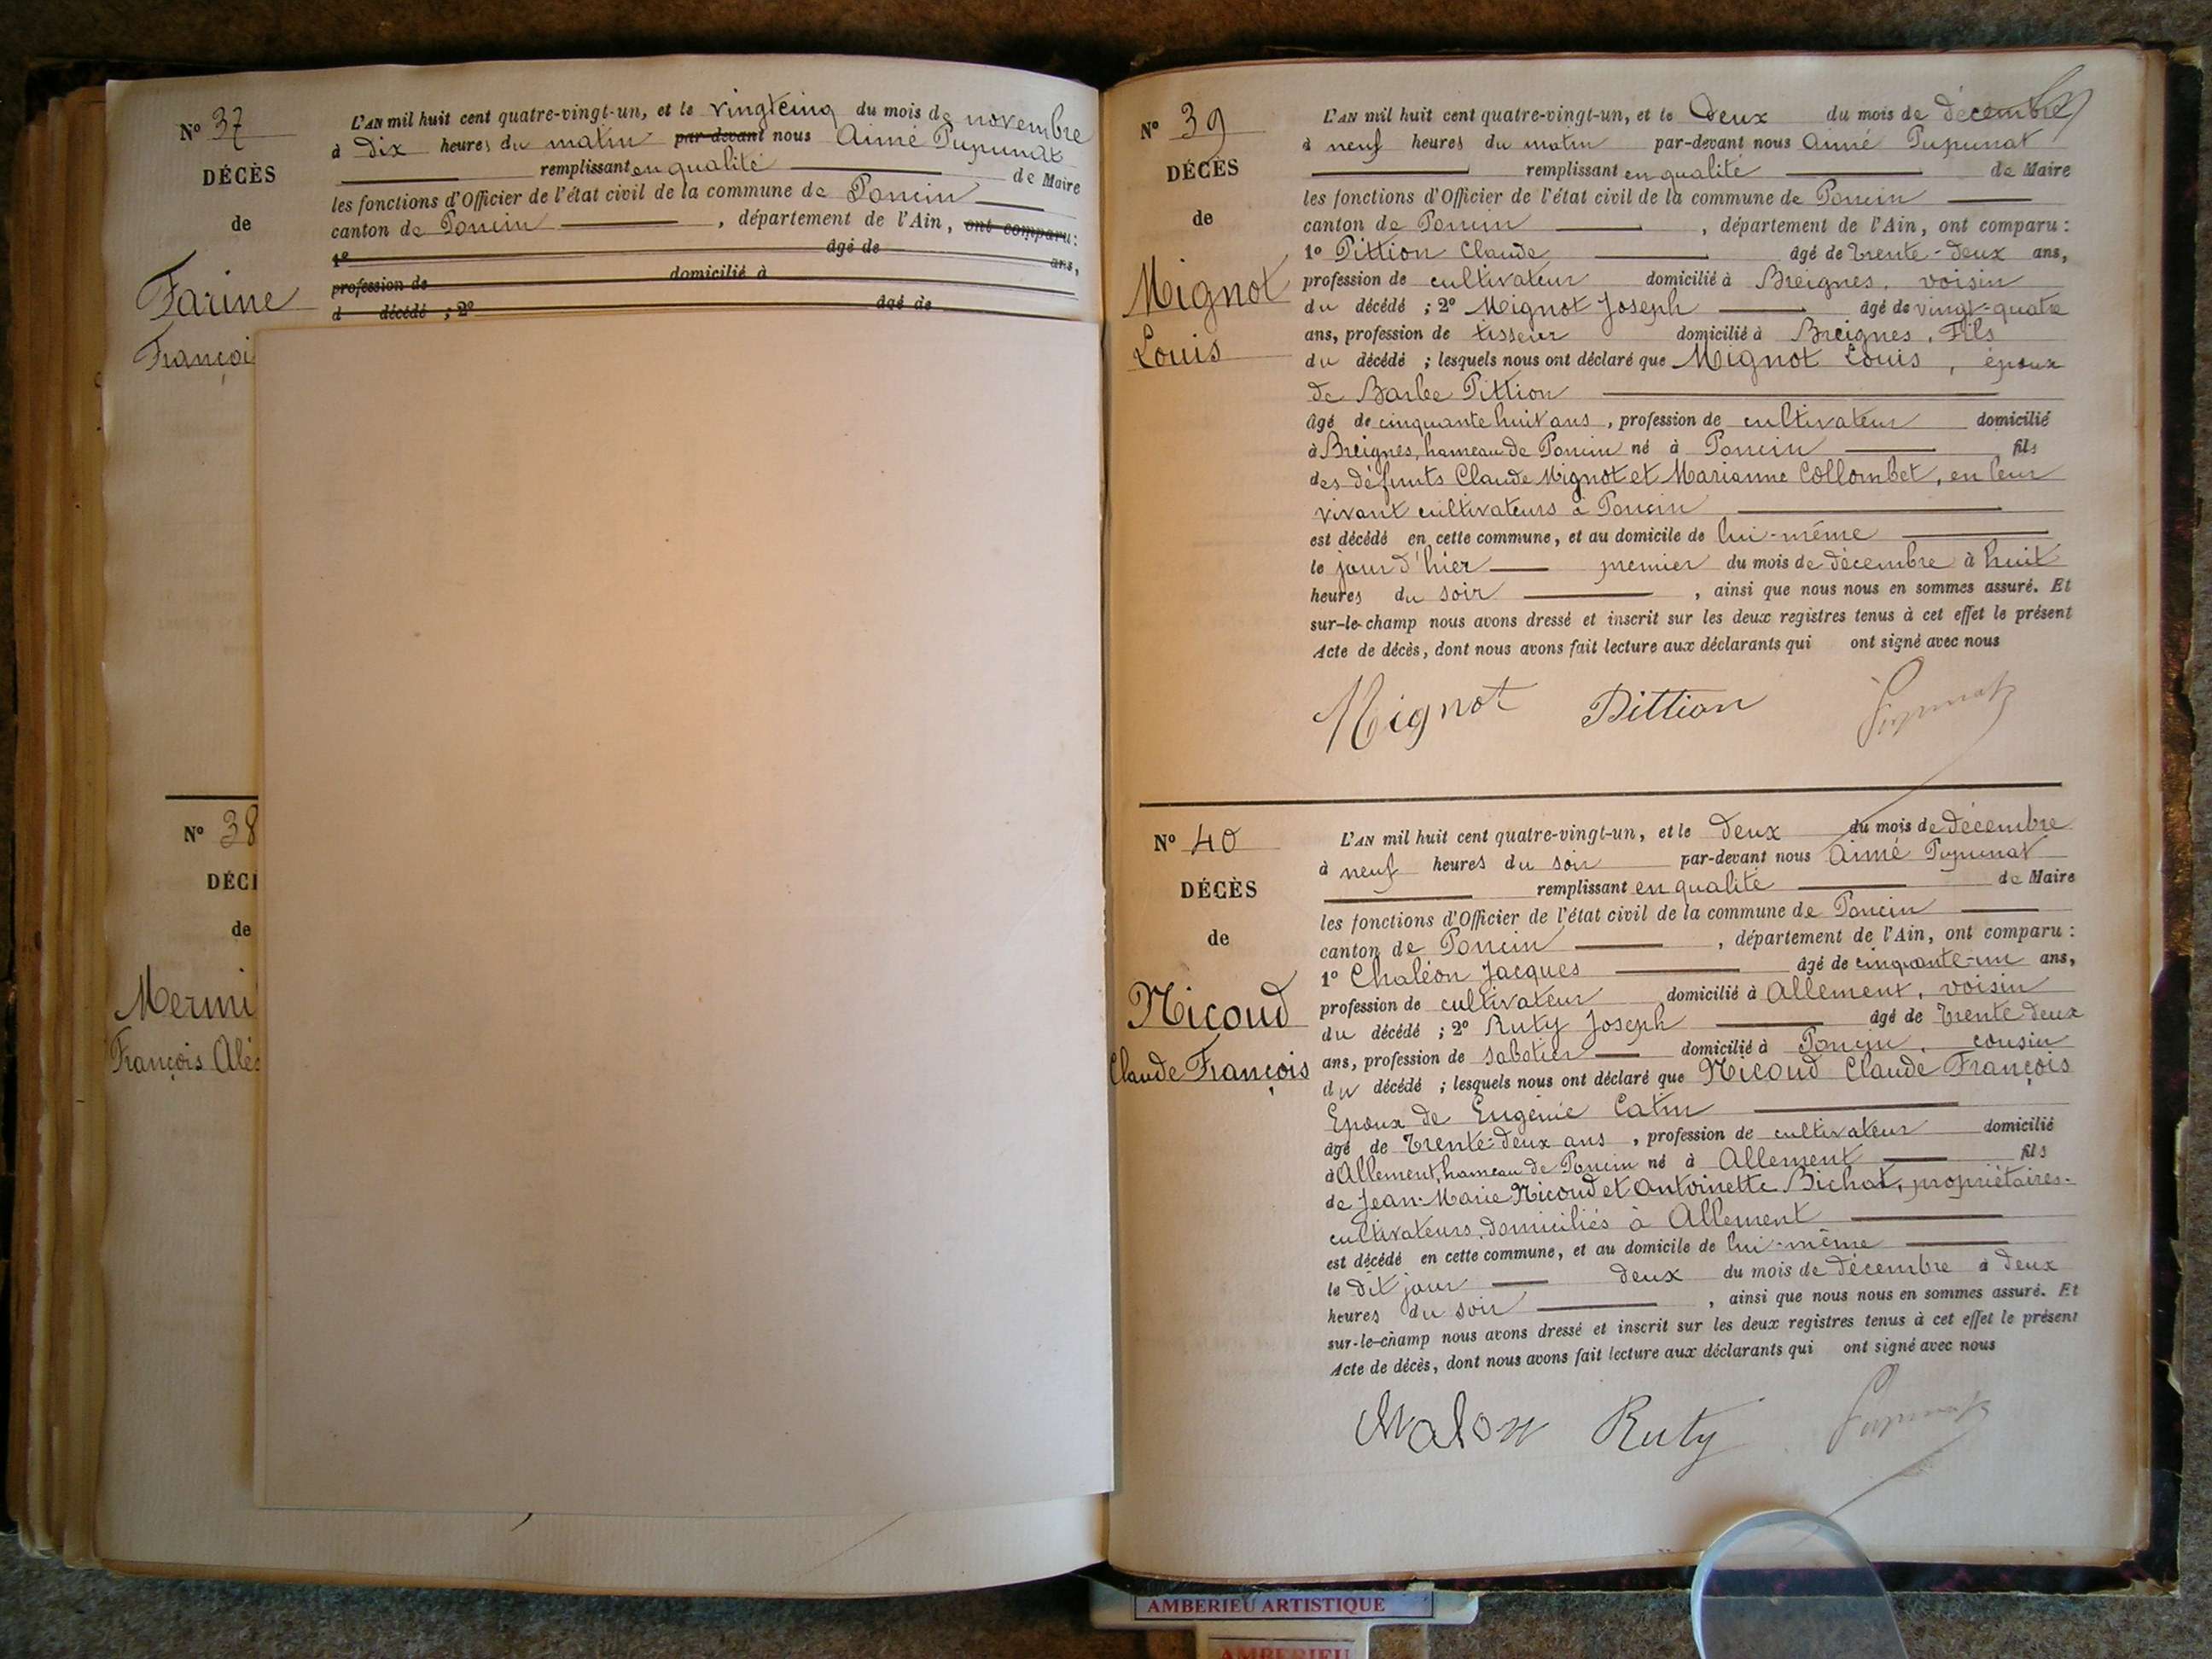 N° 37
DÉCÈS
de
Farine
Françoi
L'AN mil huit cent quatre-vingt-un, et le vingtcinq du mois de novembre
à dix heures du matin par-devant nous Aimé Pupunat
remplissant en qualité de Maire
les fonctions d'Officier de l'état civil de la commune de Poncin
canton de Poncin , département de l'Ain, ont comparu :
1° âgé de ans,
profession de domicilié à
d décédé ; 2° âgé de
N° 38
DÉCÈ
de
Mermi
François Alé
N° 39
DÉCÈS
de
Mignot
Louis
L'AN mil huit cent quatre-vingt-un, et le deux du mois de décembre
à neuf heures du matin par-devant nous Aimé Pupunat
remplissant en qualité de Maire
les fonctions d'Officier de l'état civil de la commune de Poncin
canton de Poncin , département de l'Ain, ont comparu :
1° Pittion Claude âgé de trente-deux ans,
profession de cultivateur domicilié à Breignes, voisin
du décédé ; 2° Mignot Joseph âgé de vingt-quatre
ans, profession de tisseur domicilié à Breignes, Fils
du décédé ; lesquels nous ont déclaré que Mignot Louis, époux
de Barbe Pittion
âgé de cinquante huit ans, profession de cultivateur domicilié
à Breignes, hameau de Poncin né à Poncin fils
des défunts Claude Mignot et Marianne Collombet, en leur
vivant cultivateurs à Poncin
est décédé en cette commune, et au domicile de lui-même
le jour d'hier premier du mois de décembre à huit
heures du soir , ainsi que nous nous en sommes assuré. Et
sur-le-champ nous avons dressé et inscrit sur les deux registres tenus à cet effet le présent
Acte de décès, dont nous avons fait lecture aux déclarants qui ont signé avec nous
Mignot Pittion Pupunat
N° 40
DÉCÈS
de
Nicoud
Claude François
L'AN mil huit cent quatre-vingt-un, et le deux du mois de décembre
à neuf heures du soir par-devant nous Aimé Pupunat
remplissant en qualité de Maire
les fonctions d'Officier de l'état civil de la commune de Poncin
canton de Poncin , département de l'Ain, ont comparu :
1° Chaléon Jacques âgé de cinquante-un ans,
profession de cultivateur domicilié à Allement, voisin
du décédé ; 2° Ruty Joseph âgé de trente-deux
ans, profession de sabotier domicilié à Poncin, cousin
du décédé ; lesquels nous ont déclaré que Nicoud Claude François
Epoux de Eugénie Catin
âgé de trente-deux ans, profession de cultivateur domicilié
à Allement, hameau de Poncin né à Allement fils
de Jean-Marie Nicoud et Antoinette Bichat, propriétaires-
cultivateurs, domiciliés à Allement
est décédé en cette commune, et au domicile de lui-même
le dit jour deux du mois de décembre à deux
heures du soir , ainsi que nous nous en sommes assuré. Et
sur-le-champ nous avons dressé et inscrit sur les deux registres tenus à cet effet le présent
Acte de décès, dont nous avons fait lecture aux déclarants qui ont signé avec nous
Ruty Pupunat
AMBERIEU ARTISTIQUE
AMBERIEU